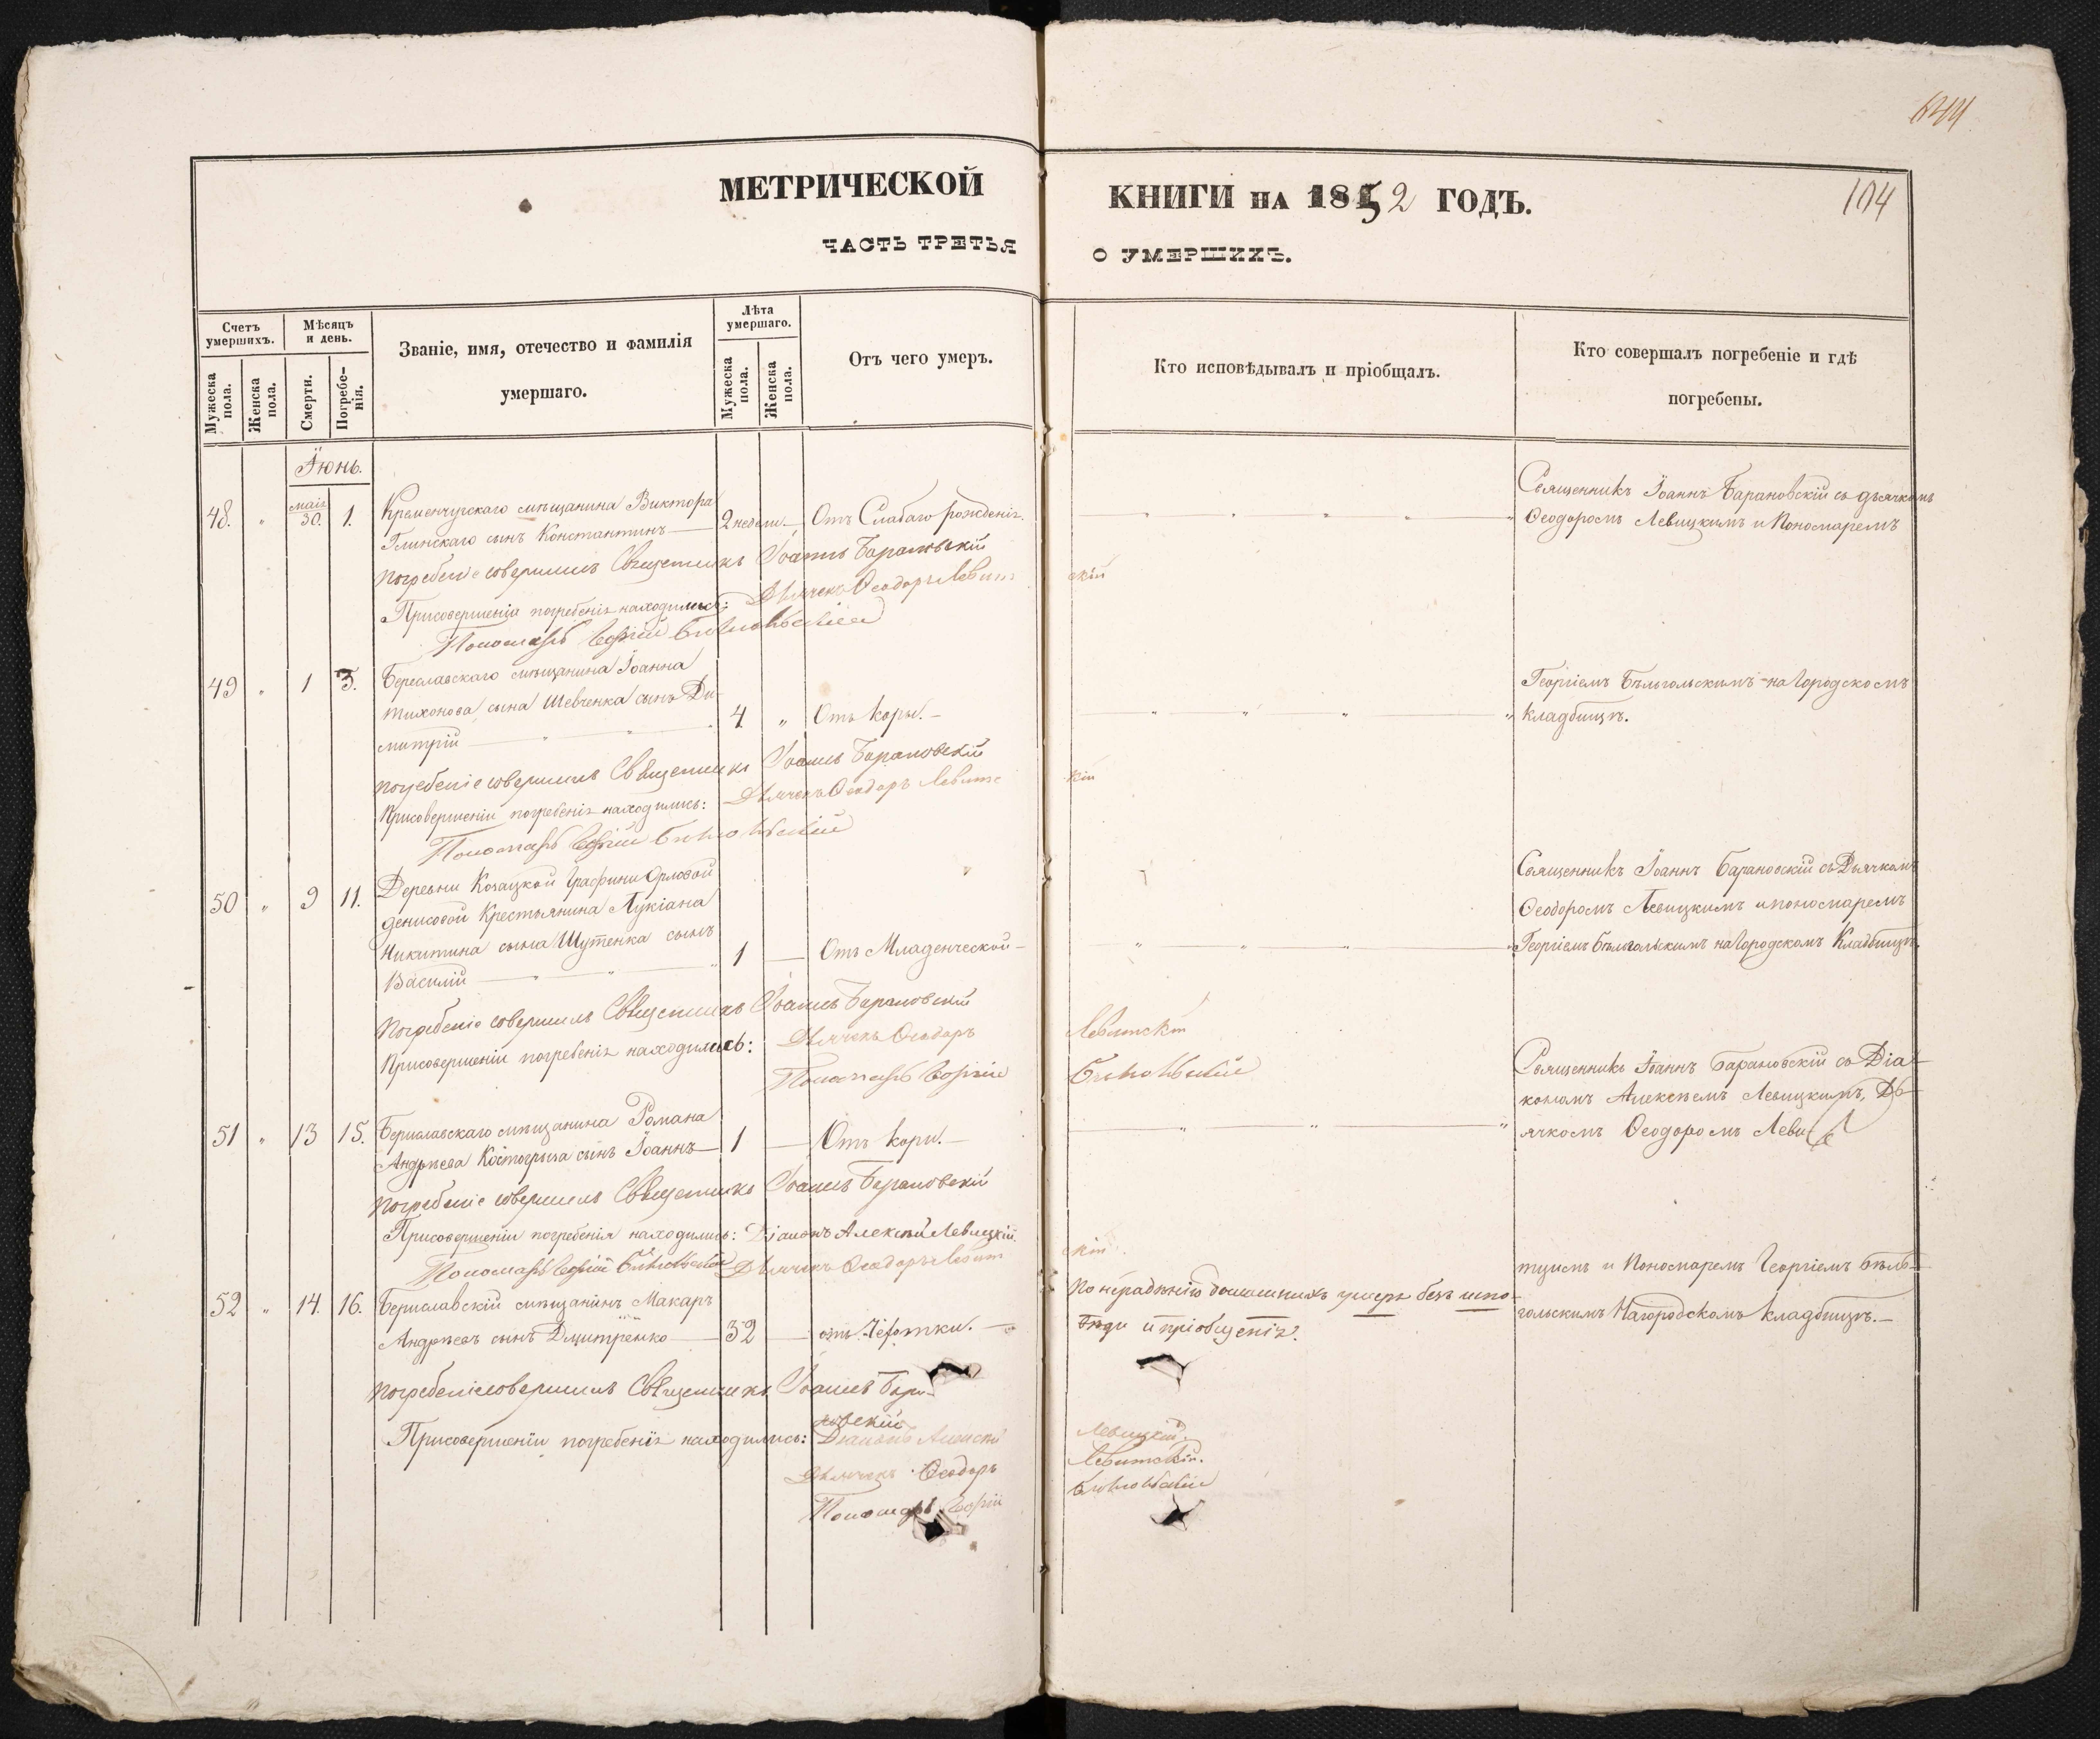 644
104
МЕТРИЧЕСКОЙ КНИГИ НА 1852 ГОДЪ.
ЧАСТЬ ТРЕТЬЯ О УМЕРШИХЪ.
Счетъ умершихъ.
Мужеска пола.
Женска пола.
Мѣсяцъ и день.
Смерти.
Погребе-нія.
Званіе, имя, отечество и фамилія
умершаго.
Лѣта умершаго.
Мужеска пола.
Женска пола.
Отъ чего умеръ.
Кто исповѣдывалъ и пріобщалъ.
Кто совершалъ погребеніе и гдѣ
погребены.
Іюнь.
48. " маія 30. 1. Кременчугскаго мѣщанина Виктора
Глинскаго сынъ Константинъ — 2 недели. — Отъ Слабаго рожденія.
Священникъ Іоаннъ Барановскій съ дьячкомъ
Ѳеодоромъ Левицкимъ и Пономаремъ
Погребеніе совершилъ Священникъ Іоаннъ Барановскій
При совершеніи погребенія находились: Дьячекъ Ѳеодоръ Левитскій
Пономарь Георгій Бѣлогольскій
49 " 1 3. Береславскаго мѣщанина Іоанна
Тихонова сына Шевченка сынъ Ди-
митрій — 4. " Отъ Кори. —
Георгіемъ Бѣльгольскимъ на Городскомъ
Кладбищѣ.
Погребеніе совершилъ Священникъ Іоаннъ Барановскій
При совершеніи погребенія находились: Дьячекъ Ѳеодоръ Левитскій
Пономарь Георгій Бѣлогольскій
50 " 9 11. Деревни Козацкой Графини Орловой
Денисовой Крестьянина Лукіана
Никитина сына Шутенка сынъ
Василій — 1 — Отъ Младенческой —
Священникъ Іоаннъ Барановскій съ Дьячкомъ
Ѳеодоромъ Левицкимъ и пономаремъ
Георгіемъ Бѣльгольскимъ на Городскомъ Кладбищѣ.
Погребеніе совершилъ Священникъ Іоаннъ Барановскій
При совершеніи погребенія находились: Дьячекъ Ѳеодоръ Левитскій
Пономарь Георгій Бѣлогольскій
51 " 13 15. Бериславскаго мѣщанина Романа
Андреева Костогрыза сынъ Іоаннъ — 1 — Отъ Кори. —
Священникъ Іоаннъ Барановскій съ Діа-
кономъ Алексѣемъ Левицкимъ, Дь-
ячкомъ Ѳеодоромъ Леви
Погребеніе совершилъ Священникъ Іоаннъ Барановскій
При совершеніи погребенія находились: Діаконъ Алексѣй Левицкій.
Пономарь Георгій Бѣлогольскій Дьячекъ Ѳеодоръ Левитскій
52 " 14. 16. Бериславскій мѣщанинъ Макаръ
Андреевъ сынъ Дмитренко — 32 — отъ Чехотки. —
По нерадѣнію домашнихъ умеръ безъ испо-
вѣди и пріобщенія.
тцимъ и Пономаремъ Георгіемъ Бѣль-
гольскимъ На городскомъ кладбищѣ. —
Погребеніе совершилъ Священникъ Іоаннъ Бара-
новскій
При совершеніи погребенія находились: Діаконъ Алексѣй Левицкій.
Дьячекъ Ѳеодоръ Левитскій.
Пономарь Георгій Бѣлогольскій